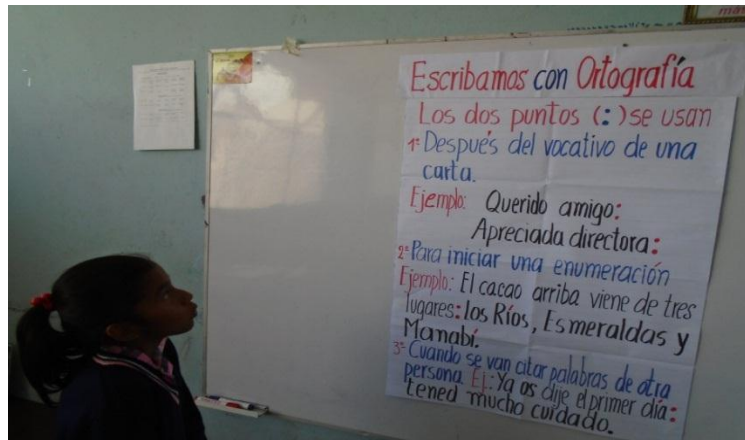 Escribamos con Ortografía
Los dos puntos (:) se usan
1º Después del vocativo de una
carta.
Ejemplo: Querido amigo:
Apreciada directora:
2º Para iniciar una enumeración
Ejemplo: El cacao arriba viene de tres
lugares: los Ríos, Esmeraldas y
Manabí.
3º Cuando se van citar palabras de otra
persona Ej: Ya os dije el primer día:
tened mucho cuidado.